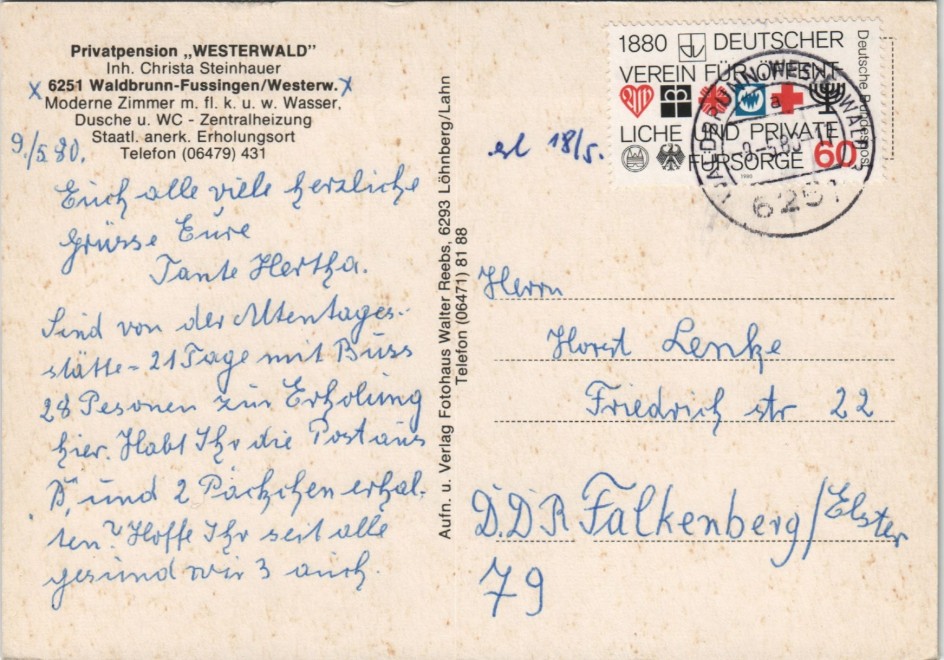 Privatpension „WESTERWALD"
Inh. Christa Steinhauer
x 6251 Waldbrunn-Fussingen/Westerw. x
Moderne Zimmer m. fl. k. u. w. Wasser,
Dusche u. WC - Zentralheizung
Staatl. anerk. Erholungsort
Telefon (06479) 431
9./5.80.
Euch alle viele herzliche
Grüsse Eure
Tante Hertha.
Sind von der Altentages-
stätte - 21 Tage mit Buss
28 Pesonen zur Erholung
hier. Habt Ihr die Post aus
B, und 2 Päckchen erhal-
ten? Hoffe Ihr seit alle
gesund wir 3 auch.
Aufn. u. Verlag Fotohaus Walter Reebs, 6293 Löhnberg/Lahn
Telefon (06471) 81 88
1880 DEUTSCHER
VEREIN FÜR ÖFFENT
LICHE UND PRIVATE
FÜRSORGE
60
1980
Deutsche Bundespost
WALDBRUNN, WESTERWALD
a
6251
18/5.
Herrn
Horst Lenke
Friedrich str 22
D.D.R Falkenberg/Elster
79